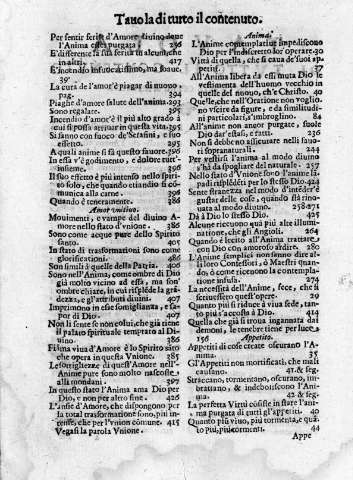 Tavola di tutto il contenuto.
Per sentir ferite d'Amore diuino deue
l'Anima esser purgata 396
E' differente la sua ferita in alcuni, che
in altri. 417
E' incendio infuocatissimo, ma soaue.
39
La cura de l'amor è piagar di nuouo
pag. 394
Piaghe d'amore salute dell'anima. 393
Sono regalate. 395
Incendio d'amor è il più alto grado à
cui si possa arriuar in questa vita. 395
Si fanno con fuoco de'Serafini, e suo
effetto. 395
A quali anime si fà questo fauore. 396
In essa v'è godimento, e dolore tutt'
insieme. 396
Il suo effetto è più intenso nello spiri-
to solo, che quando etiandio si co-
munica alla carne. 396
Quando è teneramente. 286
Amor vnitiuo.
Mouimenti, e vampe del diuino A-
more nello stato d'vnione. 386
Sono come acque pure dello Spirito
santo. 405
In stato di trasformatione sono come
glorificationi. 486
Son simili à quelle della Patria.
Sono nell'Anima, come ombre di Dio
già molto vicino ad essa, ma son'
ombre chiare, in cui risplende la gran-
dezza, e gl'attributi diuini. 405
Imprimono in esse somiglianza, e sa-
por di Dio. 407
Non li sente se non colui, che già tiene
il palato spirituale temprato al Di-
uino. 386
Fiama viua d'Amore è lo Spirito sãto
che opera in questa Vnione. 385
Le sottigliezze di quest'Amore nell'A-
nime pure sono molto nascoste
alli mondani. 397
In questo stato l'Anima ama Dio per
Dio, e non per altro fine. 426
L'ansie d'Amore, che dispongono per
la total trasformatione sono, più in-
tense, che per l'vnion comune. 415
Vegasi la parola Vnione.
Anima.
L'Anime contemplatiue impediscono
Dio per l'indiscretto lor'operare. 30
Viltà di quella, che si caua de'suoi ap-
petiti. 37
All'Anima libera da essi muta Dio le
vestimenta dell'huomo vecchio in
quelle del nuouo, ch'è Christo. 40
Quelle, che nell'Oratione non voglio-
no vscire da figure, e da similitudi-
ni particolari, s'imbrogliano. 84
All'anime non ancor purgate, suol
Dio dar'estasi, e ratti. 236
Non si debbono assicurare nelli fauo-
ri sopranaturali. 234
Per vestirsi l'anima al modo diuino
s'hà da spogliar del naturale. 257
Nello stato d'Vnione sono l'anime lã-
padi risplẽdẽti per lo stesso Dio. 424
Sente stranezza nel modo d'intẽder'e
gustar delle cose, quando stà rino-
uata al modo diuino. 278 & 271
Dà à Dio lo stesso Dio. 425
Alcune riceuono quà più alte illumi-
nationi, che gli Angioli. 264
Quando è lecito all'Anima trattare
con Dio con amoroso ardire. 280
L'Anime semplici non sanno dire al-
li loro Confessori, ò Maestri quan-
do, ò come riceuono la contempla-
tione infusa. 274
La necessità dell'Anime, fece, che si
scriuessi quest'opere. 29
Quanto più si riduce à viua fede, tan-
to più s'accosta à Dio. 414
Quella che già si troua ingannata dal
demoni, le tenebre tiene per luce.
196
Appetito.
Appetiti di cose create oscurano l'A-
nima. 35
Gl'Appetiti non mortificati, che mali
causano. 41. & seg.
Straccano, tormentano, oscurano, im-
brattano, & indeboliscono l'Ani-
ma. 42 & seg.
La perfetta Virtù cõsiste in stare l'ani-
ma purgata di tutti gl'appetiti. 40
Quanto più viuo, più tormenta, e quã-
to più, più tormenti. 44
Appe